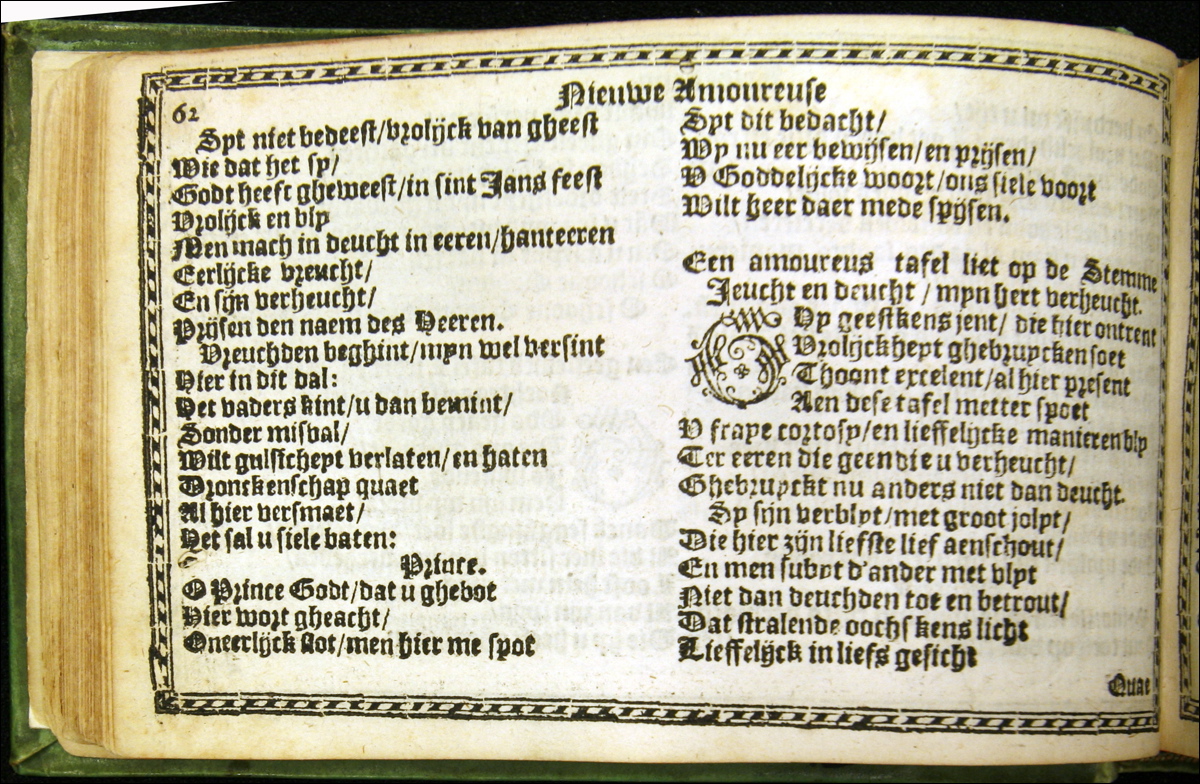 62
Nieuwe Amoureuse
Syt niet bedeest/vrolijck van gheest
Wie dat het sy/
Godt heeft gheweest/in sint Jans feest
Vrolijck en bly
Men mach in deucht in eeren/hanteeren
Eerlijcke vreucht/
En sijn verheucht/
Prijsen den naem des Heeren.
Vreuchden beghint/myn wel versint
Hier in dit dal:
Het vaders kint/u dan bemint/
Sonder misval/
Wilt gulsicheyt verlaten/en haten
Dronckenschap quaet
Al hier versmaet/
Het sal u siele baten:
Prince.
O Prince Godt/dat u ghebot
Hier wort gheacht/
Oneerlijck slot/men hier me spot
Syt dit bedacht/
Wy nu eer bewijsen/en prijsen/
V Goddelijcke woort/ons siele voort
Wilt heer daer mede spijsen.
Een amoureus tafel liet op de Stemme
Jeucht en deucht / myn hert verheucht.
GHy geestkens jent/ die hier ontrent
Vrolijckheyt ghebruycken soet
Thoont excelent/al hier present
Aen dese tafel metter spoet
V fraye cortosy/en lieffelijcke manieren bly
Ter eeren die geen die u verheucht/
Ghebruyckt nu anders niet dan deucht.
Sy sijn verblyt/met groot jolyt/
Die hier zijn liefste lief aenschout/
En men subyt d'ander met vlyt
Niet dan deuchden toe en betrout/
Dat stralende oochskens licht
Lieffelijck in liefs gesicht
Quae